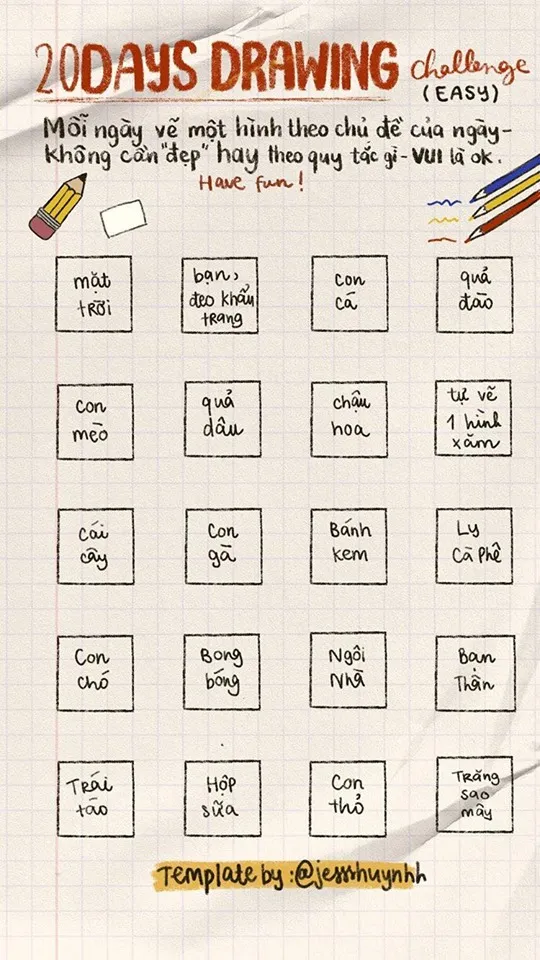 20DAYS DRAWING challenge
(EASY)
Mỗi ngày vẽ một hình theo chủ đề của ngày-
không cần "đẹp" hay theo quy tắc gì - VUI là ok.
Have fun!
mặt
trời
bạn,
đeo khẩu
trang
con
cá
quả
đào
con
mèo
quả
dâu
chậu
hoa
tự vẽ
1 hình
xăm
cái
cây
Con
gà
Bánh
kem
Ly
Cà Phê
Con
chó
Bong
bóng
Ngôi
Nhà
Bạn
Thân
Trái
táo
Hộp
sữa
Con
thỏ
Trăng
sao
mây
Template by :@jessshuynhh